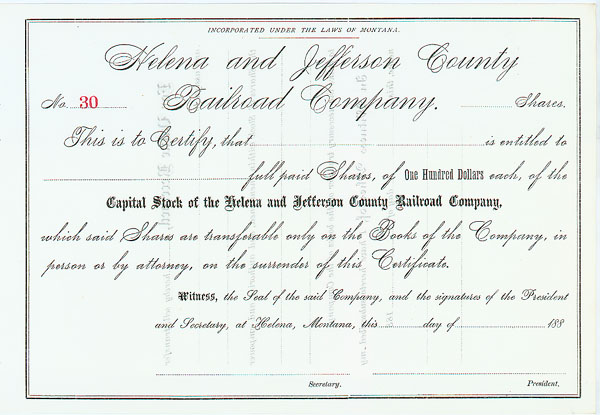 INCORPORATED UNDER THE LAWS OF MONTANA.
Helena and Jefferson County
No. 30 Railroad Company. Shares.
This is to Certify, that is entitled to
full paid Shares, of One Hundred Dollars each, of the
Capital Stock of the Helena and Jefferson County Railroad Company,
which said Shares are transferable only on the Books of the Company, in
person or by attorney, on the surrender of this Certificate.
Witness, the Seal of the said Company, and the signatures of the President
and Secretary, at Helena, Montana, this day of 188
Secretary. President.